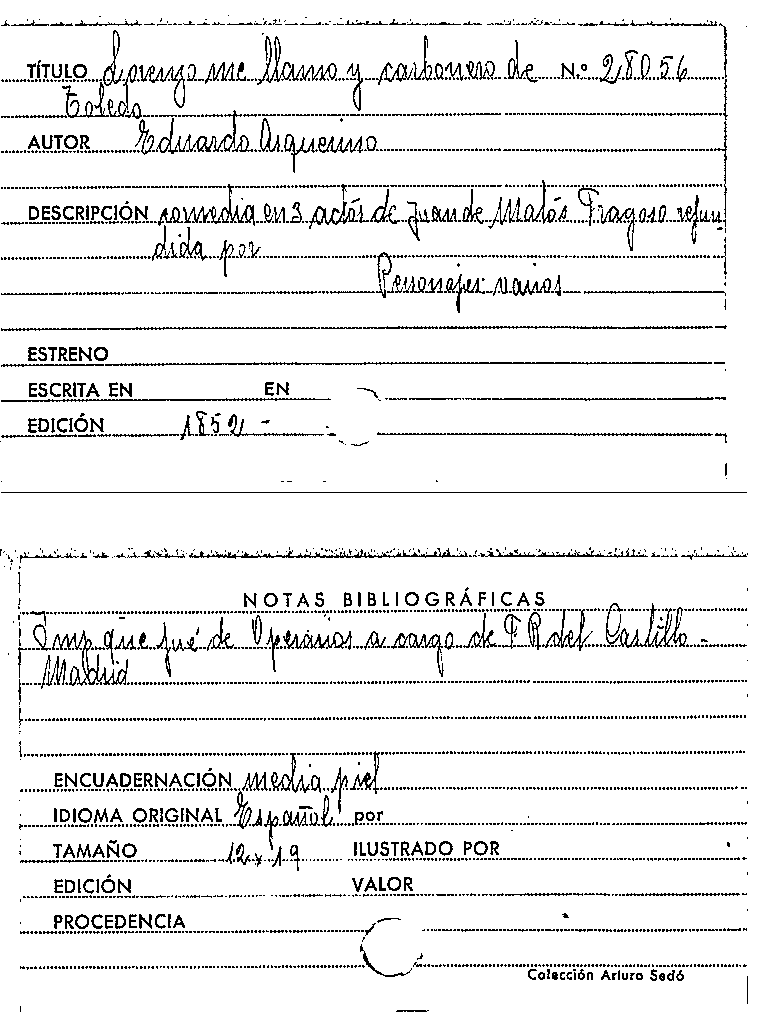 TÍTULO Lorenzo me llamo y carbonero de N.º 28056
Toledo
AUTOR Eduardo Asquerino
DESCRIPCIÓN comedia en 3 actos de Juan de Matós Fragoso refun-
dida por
Personajes: varios
ESTRENO
ESCRITA EN EN
EDICIÓN 1852 -
NOTAS BIBLIOGRÁFICAS
Imp que fué de Operarios a cargo de F R del Castillo -
Madrid
ENCUADERNACIÓN media piel
IDIOMA ORIGINAL Español por
TAMAÑO 12 x 19 ILUSTRADO POR
EDICIÓN VALOR
PROCEDENCIA
Colección Arturo Sedó